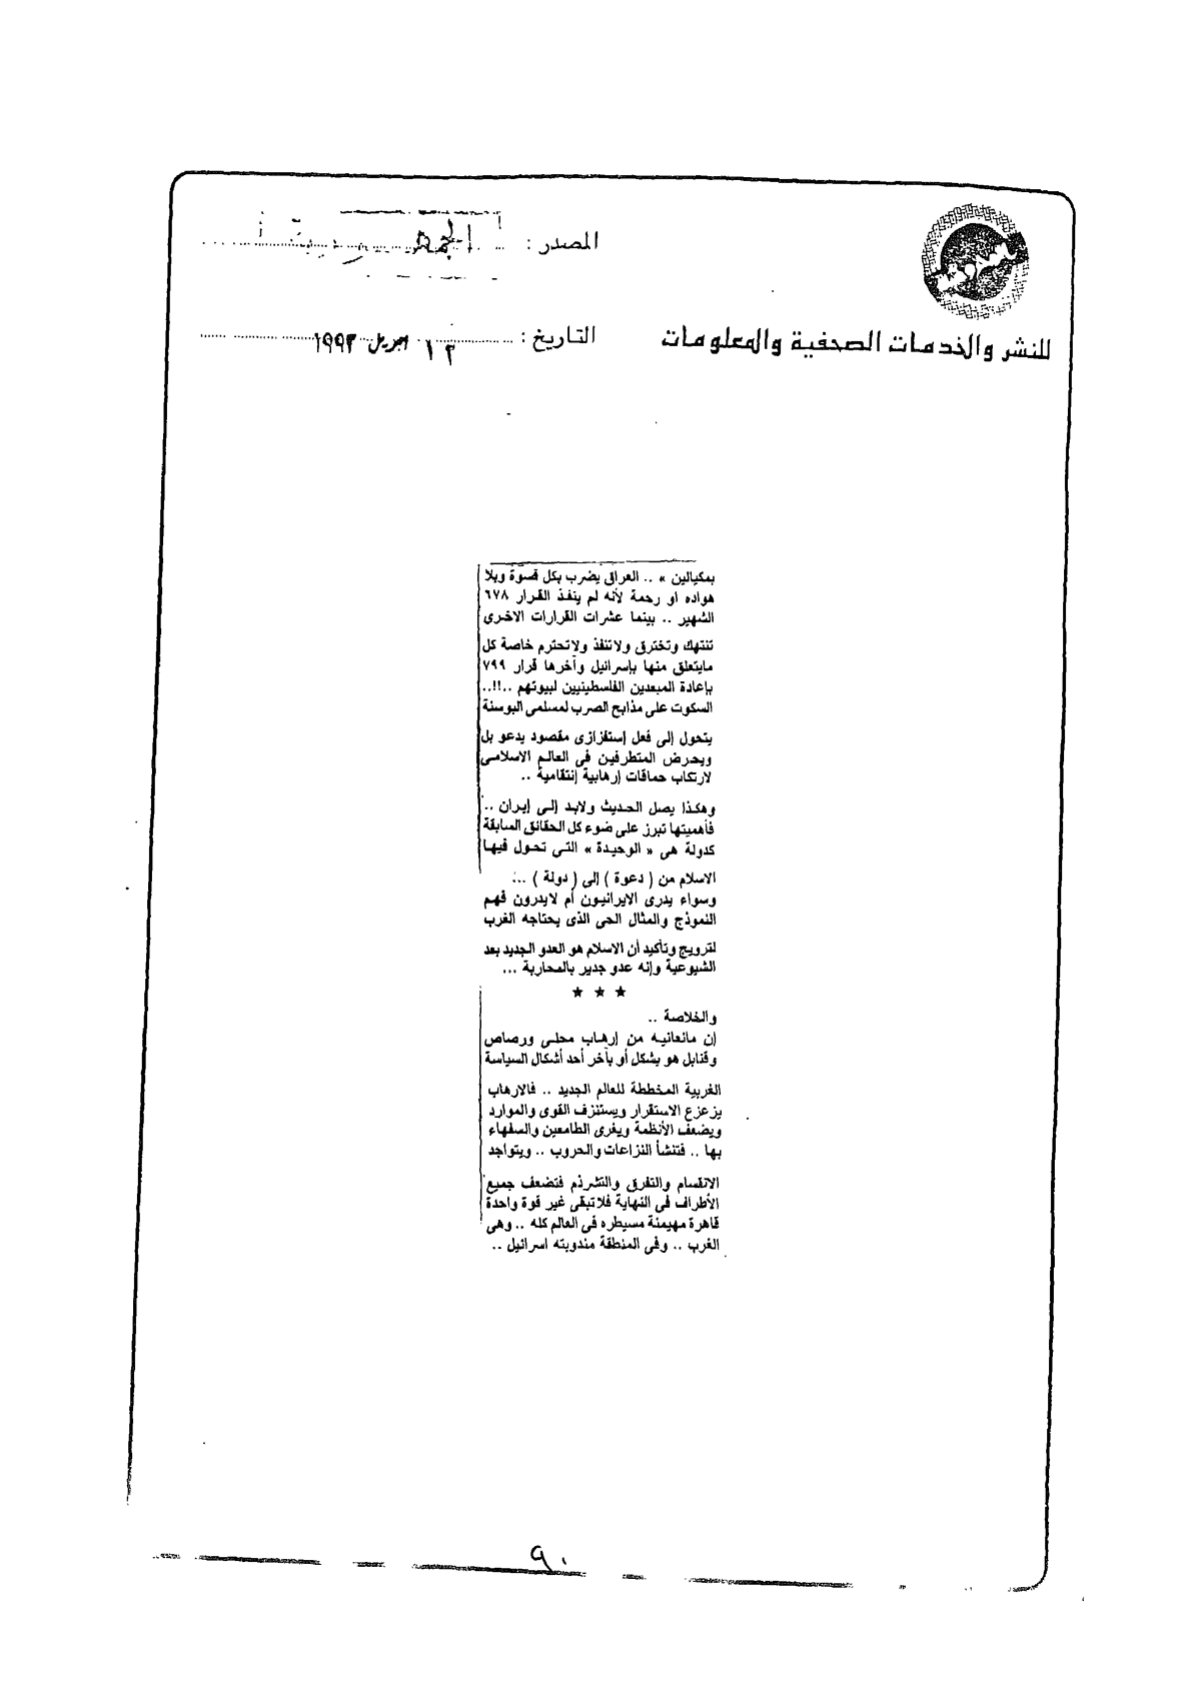 المصدر : الجمهورية
للنشر والخدمات الصحفية والمعلومات
التاريخ : ١٣ ابريل ١٩٩٣
بمكيالين » .. العراق يضرب بكل قسوة وبلا
هواده او رحمة لأنه لم ينفذ القرار ٦٧٨
الشهير .. بينما عشرات القرارات الاخرى
تنتهك وتخترق ولاتنفذ ولاتحترم خاصة كل
مايتعلق منها بإسرائيل وآخرها قرار ٧٩٩
بإعادة المبعدين الفلسطينيين لبيوتهم ..!!..
السكوت على مذابح الصرب لمسلمى البوسنة
يتحول إلى فعل إستفزازى مقصود يدعو بل
ويحرض المتطرفين فى العالم الاسلامى
لارتكاب حماقات إرهابية إنتقامية ..
وهكذا يصل الحديث ولابد إلى إيران ..
فأهميتها تبرز على ضوء كل الحقائق السابقة
كدولة هى « الوحيدة » التى تحول فيها
الاسلام من ( دعوة ) إلى ( دولة ) ..
وسواء يدرى الايرانيون أم لايدرون فهم
النموذج والمثال الحى الذى يحتاجه الغرب
لترويج وتأكيد أن الاسلام هو العدو الجديد بعد
الشيوعية وإنه عدو جدير بالمحاربة ...
★ ★ ★
والخلاصة ..
إن مانعانيه من إرهاب محلى ورصاص
وقنابل هو بشكل أو بآخر أحد أشكال السياسة
الغربية المخططة للعالم الجديد .. فالارهاب
يزعزع الاستقرار ويستنزف القوى والموارد
ويضعف الأنظمة ويغرى الطامعين والسفهاء
بها .. فتنشأ النزاعات والحروب .. ويتواجد
الانقسام والتفرق والتشرذم فتضعف جميع
الأطراف فى النهاية فلاتبقى غير قوة واحدة
قاهرة مهيمنة مسيطره فى العالم كله .. وهى
الغرب .. وفى المنطقة مندوبته اسرائيل ..
٩٠